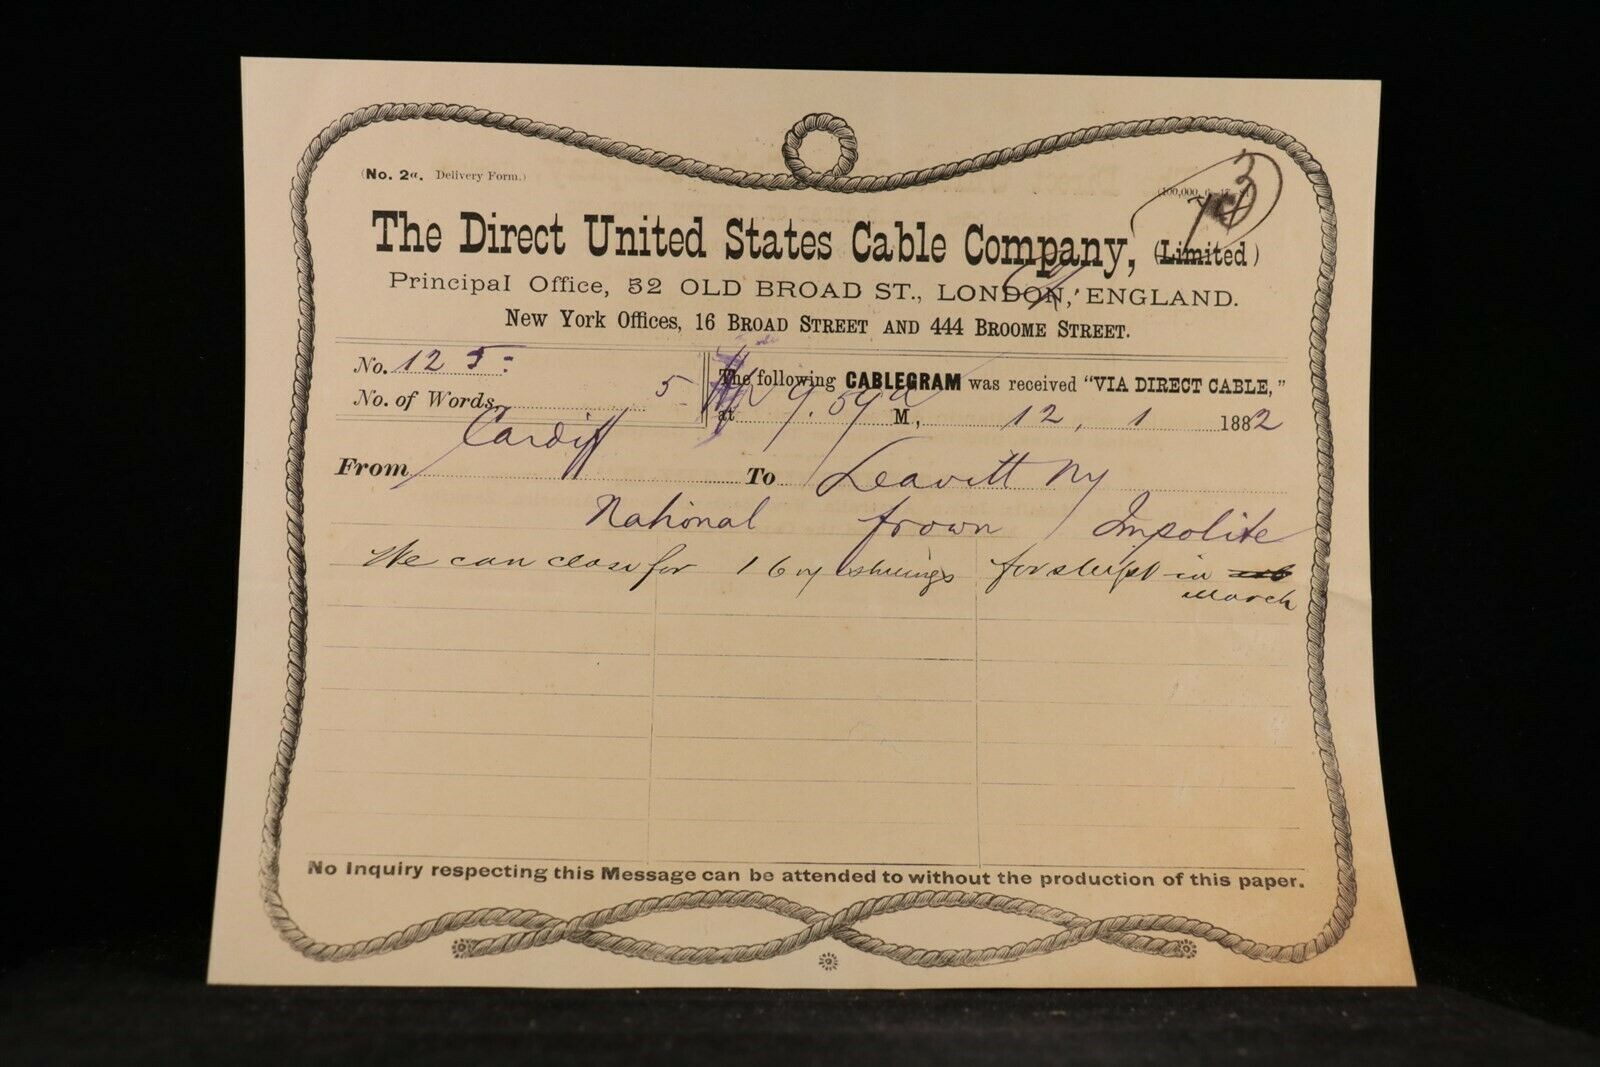 (No. 2a. Delivery Form.)
3
The Direct United States Cable Company, (Limited)
Principal Office, 52 OLD BROAD ST., LONDON, ENGLAND.
New York Offices, 16 BROAD STREET AND 444 BROOME STREET.
No. 125
No. of Words, 5
The following CABLEGRAM was received "VIA DIRECT CABLE,"
at 9.59 a M, 12. 1 1882
From Cardiff To Leavitt Ny
National frown Impolite
We can close for 16 shillings for shipt in
March
No Inquiry respecting this Message can be attended to without the production of this paper.